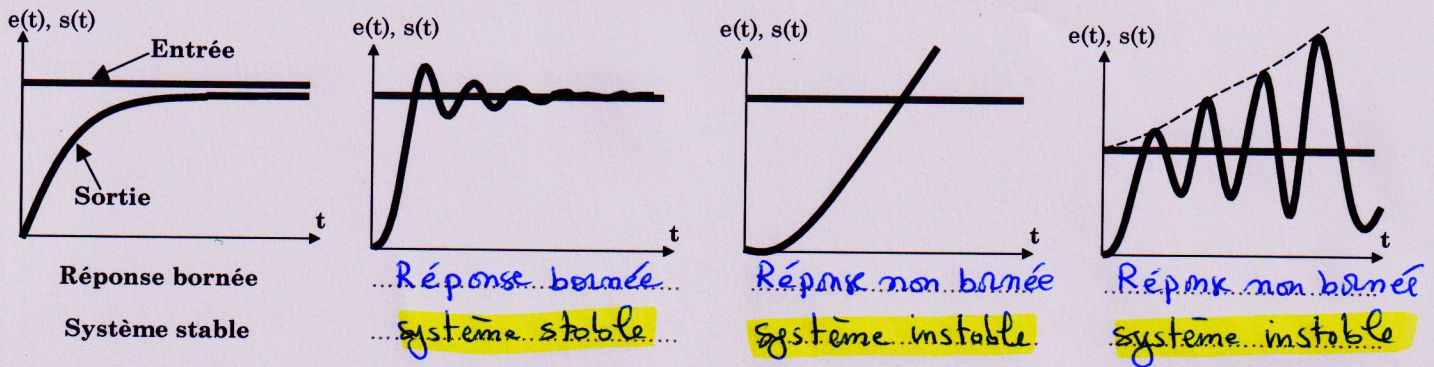 e(t), s(t)
Entrée
Sortie
t
Réponse bornée
Système stable
e(t), s(t)
t
...Réponse bornée...
...système stable...
e(t), s(t)
t
Réponse non bornée
système instable
e(t), s(t)
t
Réponse non bornée
système instable